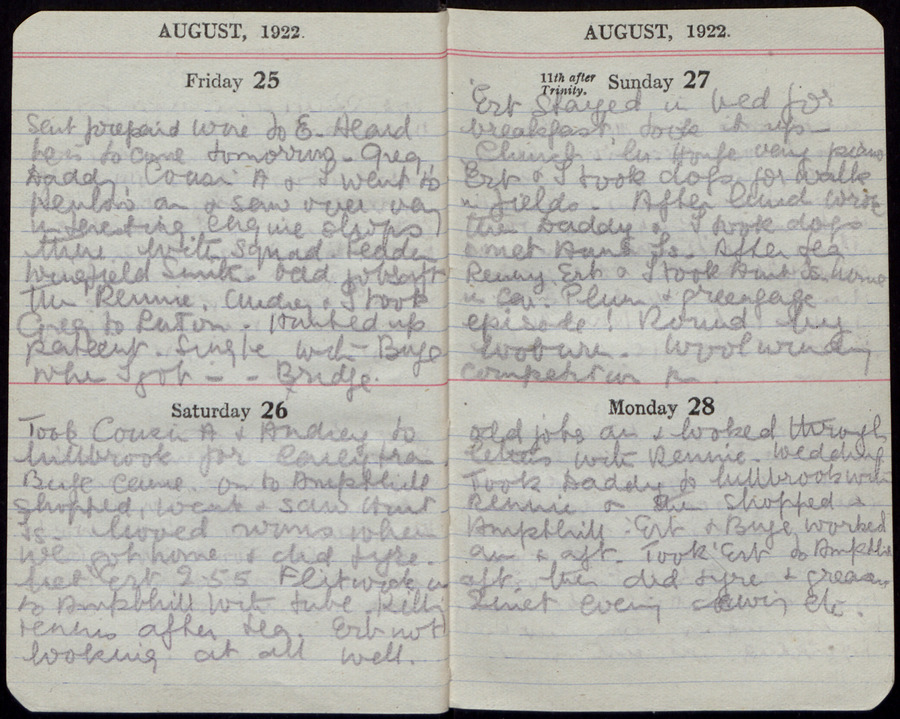 AUGUST, 1922.
Friday 25
Sent prepaid wire to E. Heard
he is to come tomorrow. Greg,
Daddy, Cousin A & I went to
Henlow am & saw over very
interesting engine shops
there with Squad. Leader
Wingfield Smith. Odd jobs aft
then Rennie, Audrey & I took
Greg to Luton. Hunted up
patient. Single with Buge
when I got - - Bridge.
Saturday 26
Took Cousin A & Audrey to
Millbrook for early train.
Buge came. on to Ampthill
shopped, went & saw Aunt
Is. Moved rooms when
we got home & did tyre.
Met Ert 2.55 Flitwick
to Ampthill with tube.
tennis after tea. Ert not
looking at all well.
AUGUST, 1922.
11th after Trinity. Sunday 27
Ert stayed in bed for
breakfast took it up
Church. House very
Ert & I took dogs for walk
in fields. After lunch wrote
then Daddy & I took dogs
& met Aunt Is. After tea
Renny Ert & I took Aunt Is. home
in car. Plum & greengage
episode! Round by
Woburn. Wool winding
competition pm.
Monday 28
odd jobs am & looked through
letters with Rennie. Wedding
Took Daddy to Millbrook with
Rennie & then shopped
Ampthill. Ert & Buge worked
am & aft. Took Ert to Ampthill
aft. then did tyre & greased
Quiet evening sewing etc.